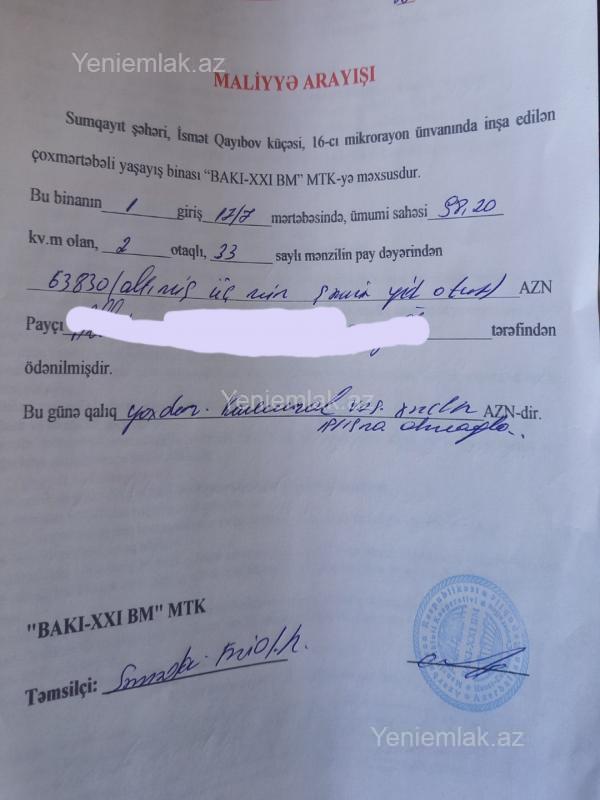 Yeniemlak.az
MALİYYƏ ARAYIŞI
Sumqayıt şəhəri, İsmət Qayıbov küçəsi, 16-cı mikrorayon ünvanında inşa edilən
çoxmərtəbəli yaşayış binası “BAKI-XXI BM” MTK-yə məxsusdur.
Bu binanın 1 giriş 17/7 mərtəbəsində, ümumi sahəsi 98,20
kv.m olan, 2 otaqlı, 33 saylı mənzilin pay dəyərindən
63830 (altmış üç min otuz) AZN
Payçı tərəfindən
ödənilmişdir.
Yeniemlak.az
Bu günə qalıq yoxdur. AZN-dir.
"BAKI-XXI BM" MTK
Təmsilçi:
BAKI-XXI BM
Yeniemlak.az